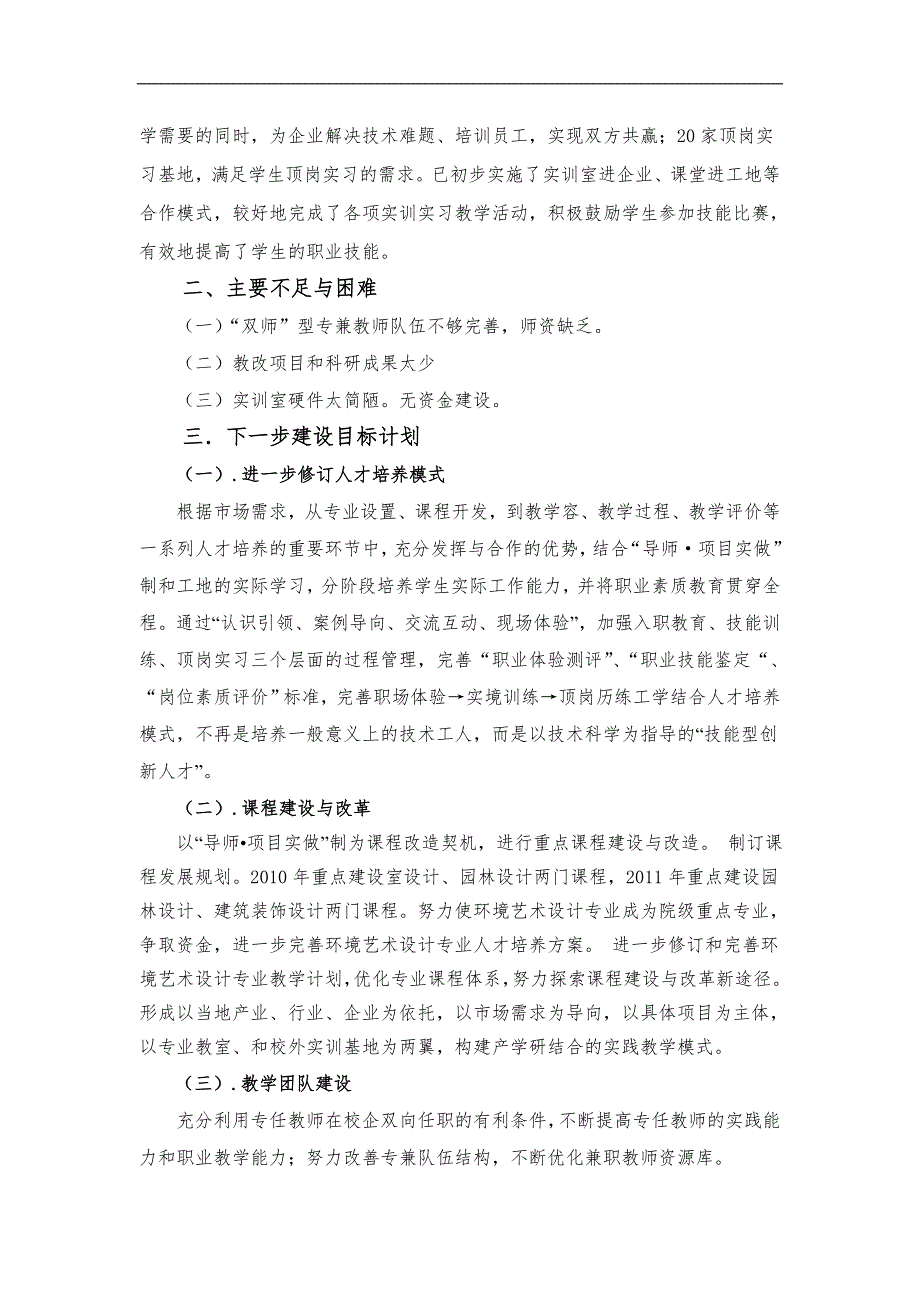 学需要的同时，为企业解决技术难题、培训员工，实现双方共赢；20 家顶岗实
习基地，满足学生顶岗实习的需求。已初步实施了实训室进企业、课堂进工地等
合作模式，较好地完成了各项实训实习教学活动，积极鼓励学生参加技能比赛，
有效地提高了学生的职业技能。
二、主要不足与困难
（一）“双师”型专兼教师队伍不够完善，师资缺乏。
（二）教改项目和科研成果太少
（三）实训室硬件太简陋。无资金建设。
三．下一步建设目标计划
（一）.进一步修订人才培养模式
根据市场需求，从专业设置、课程开发，到教学容、教学过程、教学评价等
一系列人才培养的重要环节中，充分发挥与合作的优势，结合“导师·项目实做”
制和工地的实际学习，分阶段培养学生实际工作能力，并将职业素质教育贯穿全
程。通过“认识引领、案例导向、交流互动、现场体验”，加强入职教育、技能训
练、顶岗实习三个层面的过程管理，完善“职业体验测评”、“职业技能鉴定“、
“岗位素质评价”标准，完善职场体验→实境训练→顶岗历练工学结合人才培养
模式，不再是培养一般意义上的技术工人，而是以技术科学为指导的“技能型创
新人才”。
（二）.课程建设与改革
以“导师•项目实做”制为课程改造契机，进行重点课程建设与改造。 制订课
程发展规划。2010 年重点建设室设计、园林设计两门课程，2011 年重点建设园
林设计、建筑装饰设计两门课程。努力使环境艺术设计专业成为院级重点专业，
争取资金，进一步完善环境艺术设计专业人才培养方案。 进一步修订和完善环
境艺术设计专业教学计划，优化专业课程体系，努力探索课程建设与改革新途径。
形成以当地产业、行业、企业为依托，以市场需求为导向，以具体项目为主体，
以专业教室、和校外实训基地为两翼，构建产学研结合的实践教学模式。
（三）.教学团队建设
充分利用专任教师在校企双向任职的有利条件，不断提高专任教师的实践能
力和职业教学能力；努力改善专兼队伍结构，不断优化兼职教师资源库。